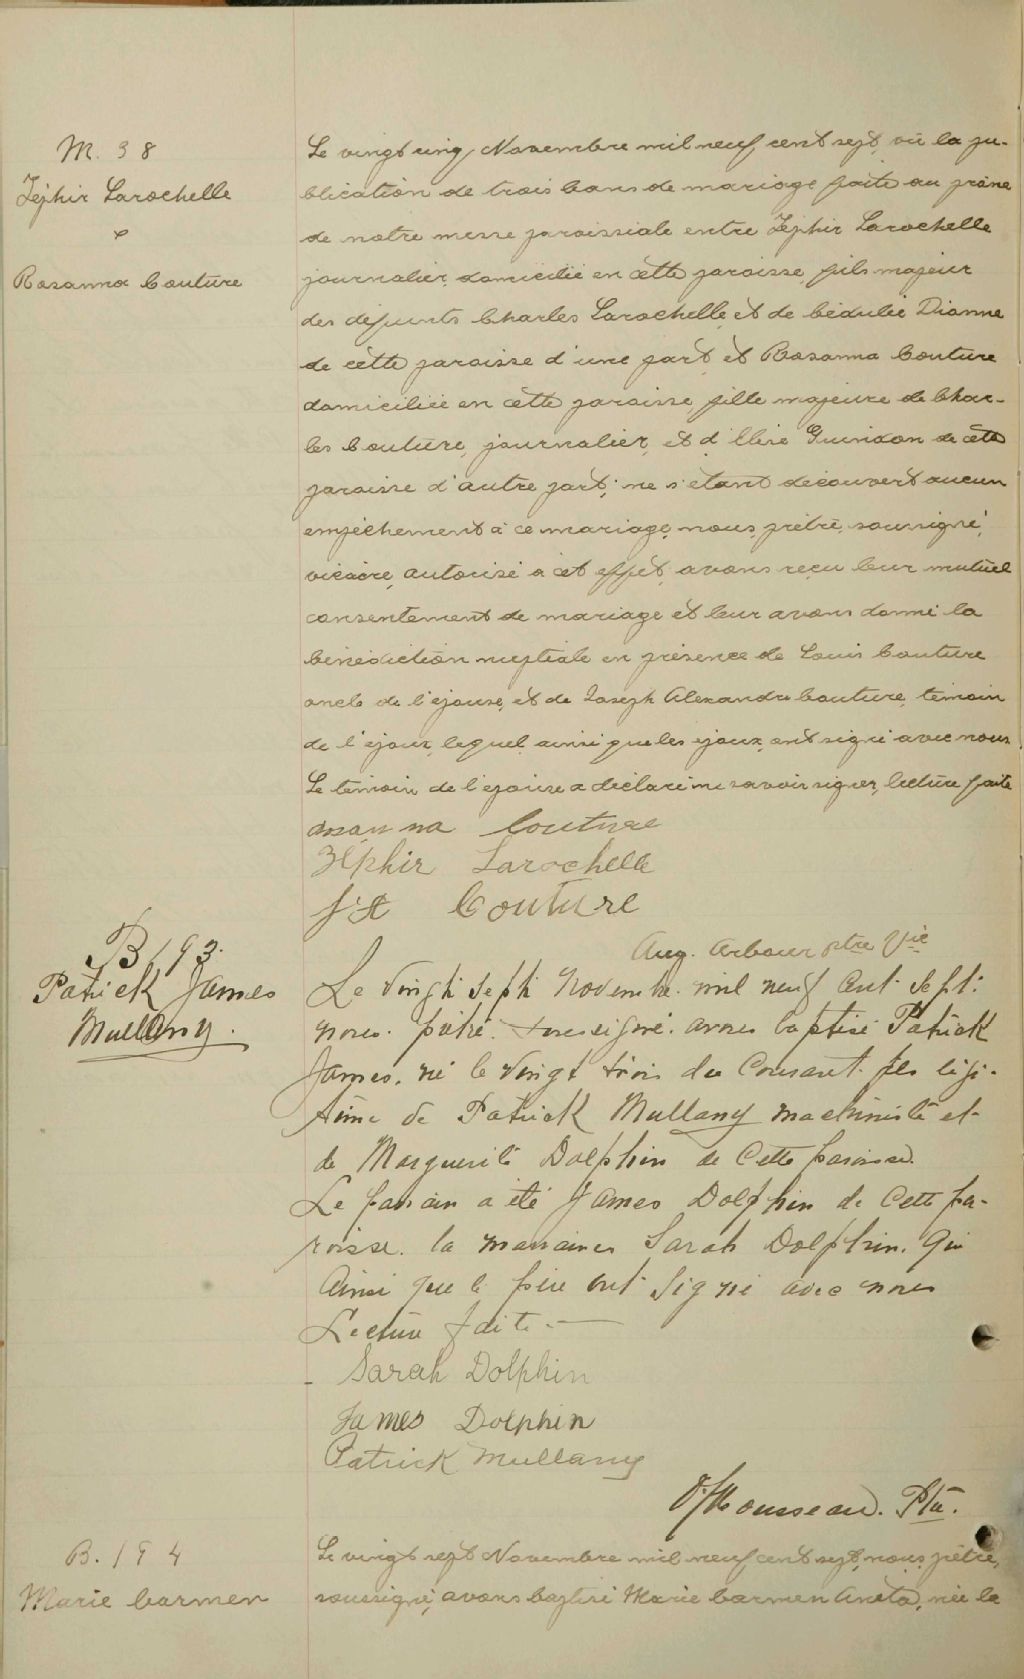 M. 38
Zéphir Larochelle
&
Rosanna Couture
Le vingt cinq Novembre mil neuf cent sept, vu la pu-
blication de trois bans de mariage faite au prône
de notre messe paroissiale entre Zéphir Larochelle
journalier, domicilié en cette paroisse, fils majeur
des défunts Charles Larochelle et de Cédulie Dionne
de cette paroisse d'une part et Rosanna Couture
domiciliée en cette paroisse fille majeure de Char-
les Couture, journalier, et d'Elise de cette
paroisse d'autre part; ne s'étant découvert aucun
empêchement à ce mariage, nous, prêtre, soussigné,
vicaire, autorisé à cet effet, avons reçu leur mutuel
consentement de mariage et leur avons donné la
bénédiction nuptiale en présence de Louis Couture
oncle de l'épouse, et de Joseph Alexandre Couture, témoin
de l'époux, lequel ainsi que les époux ont signé avec nous
Le témoin de l'épouse a déclaré ne savoir signer, lecture faite
Couture
Zéphir Larochelle
J. A Couture
Aug. Arbour ptre Vic
B 193.
Patrick James
Mullany.
Le Vingt Sept Novembre mil neuf cent sept
nous prêtre soussigné avons baptisé Patrick
James, né le vingt trois du courant fils légi-
time de Patrick Mullany machiniste et
de Marguerite Dolphin de Cette paroisse.
Le parrain a été James Dolphin de Cette pa-
roisse. la marraine Sarah Dolphin. qui
Ainsi que le père ont signé avec nous
Lecture faite. —
- Sarah Dolphin
James Dolphin
Patrick Mullany
Rousseau. Ptre.
B. 194
Marie Carmen
Le vingt sept Novembre mil neuf cent sept, nous, prêtre,
soussigné, avons baptisé Marie Carmen Aneta, née le